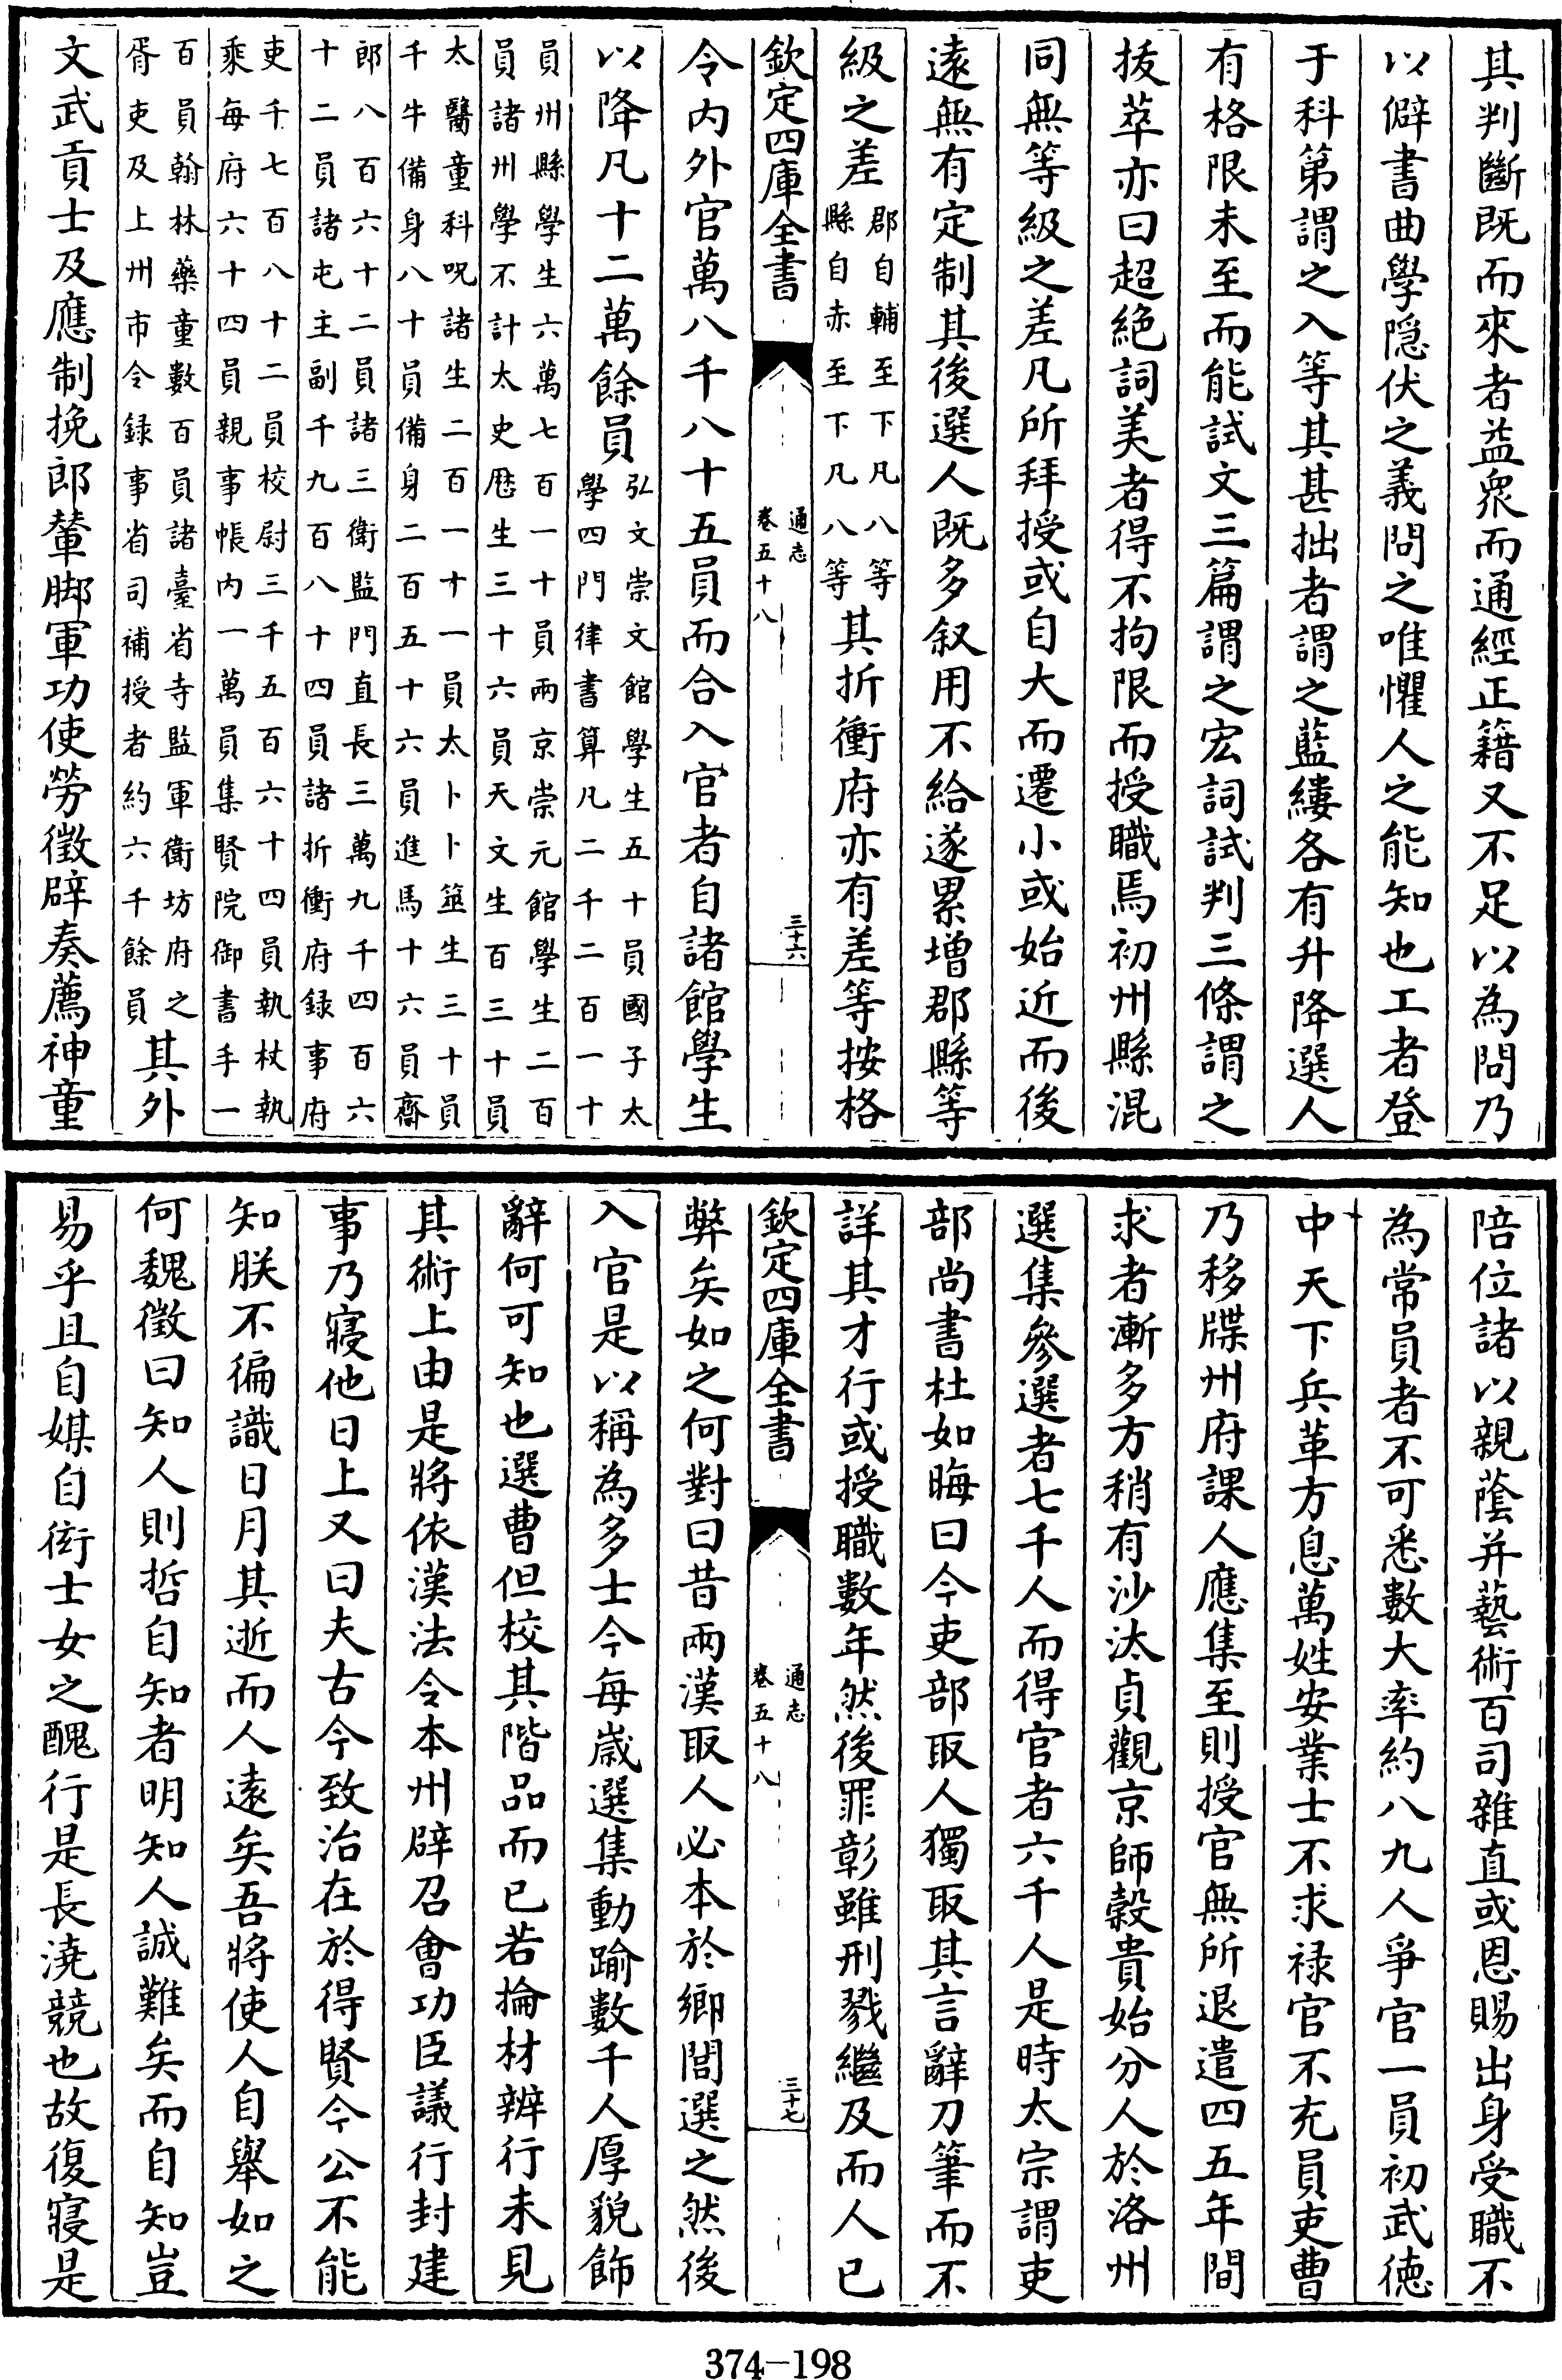 其判斷既而來者益衆而通經正籍又不足以為問乃
以僻書曲學隠伏之義問之唯懼人之能知也工者登
于科第謂之入等其甚拙者謂之藍縷各有升降選人
有格限未至而能試文三篇謂之宏詞試判三條謂之
拔萃亦曰超絶詞美者得不拘限而授職焉初州縣混
同無等級之差凡所拜授或自大而遷小或始近而後
遠無有定制其後選人既多叙用不給遂累增郡縣等
級之差郡自輔至下凡八等縣自赤至下凡八等其折衝府亦有差等按格
欽定四庫全書 通志卷五十八 三十六
令内外官萬八千八十五員而合入官者自諸館學生
以降凡十二萬餘員弘文崇文館學生五十員國子太學四門律書算凡二千二百一十
員州縣學生六萬七百一十員兩京崇元館學生二百員諸州學不計太史厯生三十六員天文生百三十員
太醫童科呪諸生二百一十一員太卜卜筮生三十員千牛備身八十員備身二百五十六員進馬十六員齋
郎八百六十二員諸三衛監門直長三萬九千四百六十二員諸屯主副千九百八十四員諸折衝府録事府
吏千七百八十二員校尉三千五百六十四員執杖執乘每府六十四員親事帳内一萬員集賢院御書手一
百員翰林藥童數百員諸臺省寺監軍衛坊府之胥吏及上州市令録事省司補授者約六千餘員其外
文武貢士及應制挽郎輦脚軍功使勞徵辟奏薦神童
陪位諸以親蔭并藝術百司雜直或恩賜出身受職不
為常員者不可悉數大率約八九人爭官一員初武徳
中天下兵革方息萬姓安業士不求禄官不充員吏曹
乃移牒州府課人應集至則授官無所退遣四五年間
求者漸多方稍有沙汰貞觀京師榖貴始分人於洛州
選集參選者七千人而得官者六千人是時太宗謂吏
部尚書杜如晦曰今吏部取人獨取其言辭刀筆而不
詳其才行或授職數年然後罪彰雖刑戮繼及而人已
欽定四庫全書 通志卷五十八 三十七
弊矣如之何對曰昔兩漢取人必本於鄉閭選之然後
入官是以稱為多士今每嵗選集動踰數千人厚貌飾
辭何可知也選曹但校其階品而已若掄材辨行未見
其術上由是將依漢法令本州辟召會功臣議行封建
事乃寢他日上又曰夫古今致治在於得賢今公不能
知朕不徧識日月其逝而人遠矣吾將使人自舉如之
何魏徵曰知人則哲自知者明知人誠難矣而自知豈
易乎且自媒自衒士女之醜行是長澆競也故復寢是
374-198